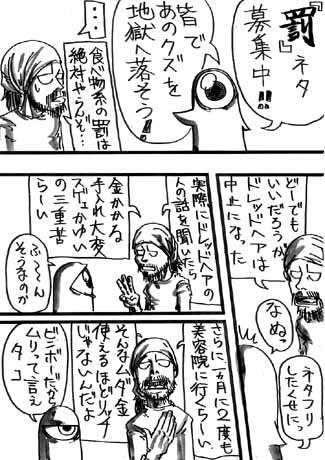 『罰』ネタ
募集中!!
皆で
あのクズを
地獄へ落そう!!
・・・
食べ物系の罰は
絶対やらんぞ…
どーでも
いいだろうが
ドレッドヘアは
中止になった
なぬっ
ネタフリ
したくせに。
実際にドレッドヘアの
人の話を聞いたら
金かかる
手入れ大変
スゲェかゆい
の三重苦
らーい
ふ〜ん
そうなのか
さらに一ヵ月に2度も
美容院に行くらーい。
そんなムダ金
使えるほどリッチ
じゃないんだよ
ビンボーだから
ムリって言え
タコ